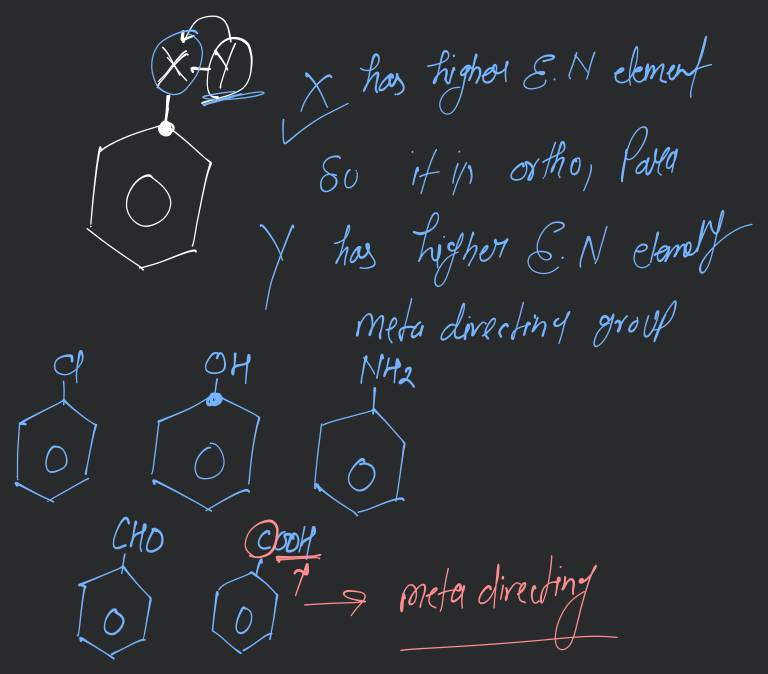 X Y
X has higher E.N element
So it is ortho, Para
Y has higher E.N element
meta directing group
Cl OH NH2
CHO COOH
meta directing